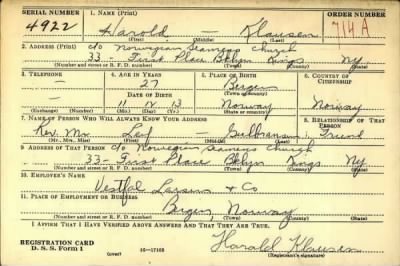 SERIAL NUMBER 1. NAME (Print) ORDER NUMBER
4922 Harold — Klausen 714 A
(First) (Middle) (Last)
2. ADDRESS (Print) c/o Norwegian Seamens Church
33 - First Place Bklyn Kings NY.
(Number and street or R. F. D. number) (Town) (County) (State)
3. TELEPHONE 4. AGE IN YEARS 5. PLACE OF BIRTH 6. COUNTRY OF CITIZENSHIP
— 27 Bergen
DATE OF BIRTH (Town or county)
— 11 12 13 Norway Norway
(Exchange) (Number) (Mo.) (Day) (Yr.) (State or country)
7. NAME OF PERSON WHO WILL ALWAYS KNOW YOUR ADDRESS 8. RELATIONSHIP OF THAT PERSON
Rev. Mr Leif — Gulbransen Friend
(Mr., Mrs., Miss) (First) (Middle) (Last)
9. ADDRESS OF THAT PERSON c/o Norwegian Seamens Church
33 - First Place Bklyn Kings NY
(Number and street or R. F. D. number) (Town) (County) (State)
10. EMPLOYER'S NAME
Vestfal Larsen & Co
11. PLACE OF EMPLOYMENT OR BUSINESS
Bergen, Norway
(Number and street or R. F. D. number) (Town) (County) (State)
I AFFIRM THAT I HAVE VERIFIED ABOVE ANSWERS AND THAT THEY ARE TRUE.
REGISTRATION CARD
D. S. S. Form 1 (over) 16—17105 Harold Klausen
(Registrant's signature)